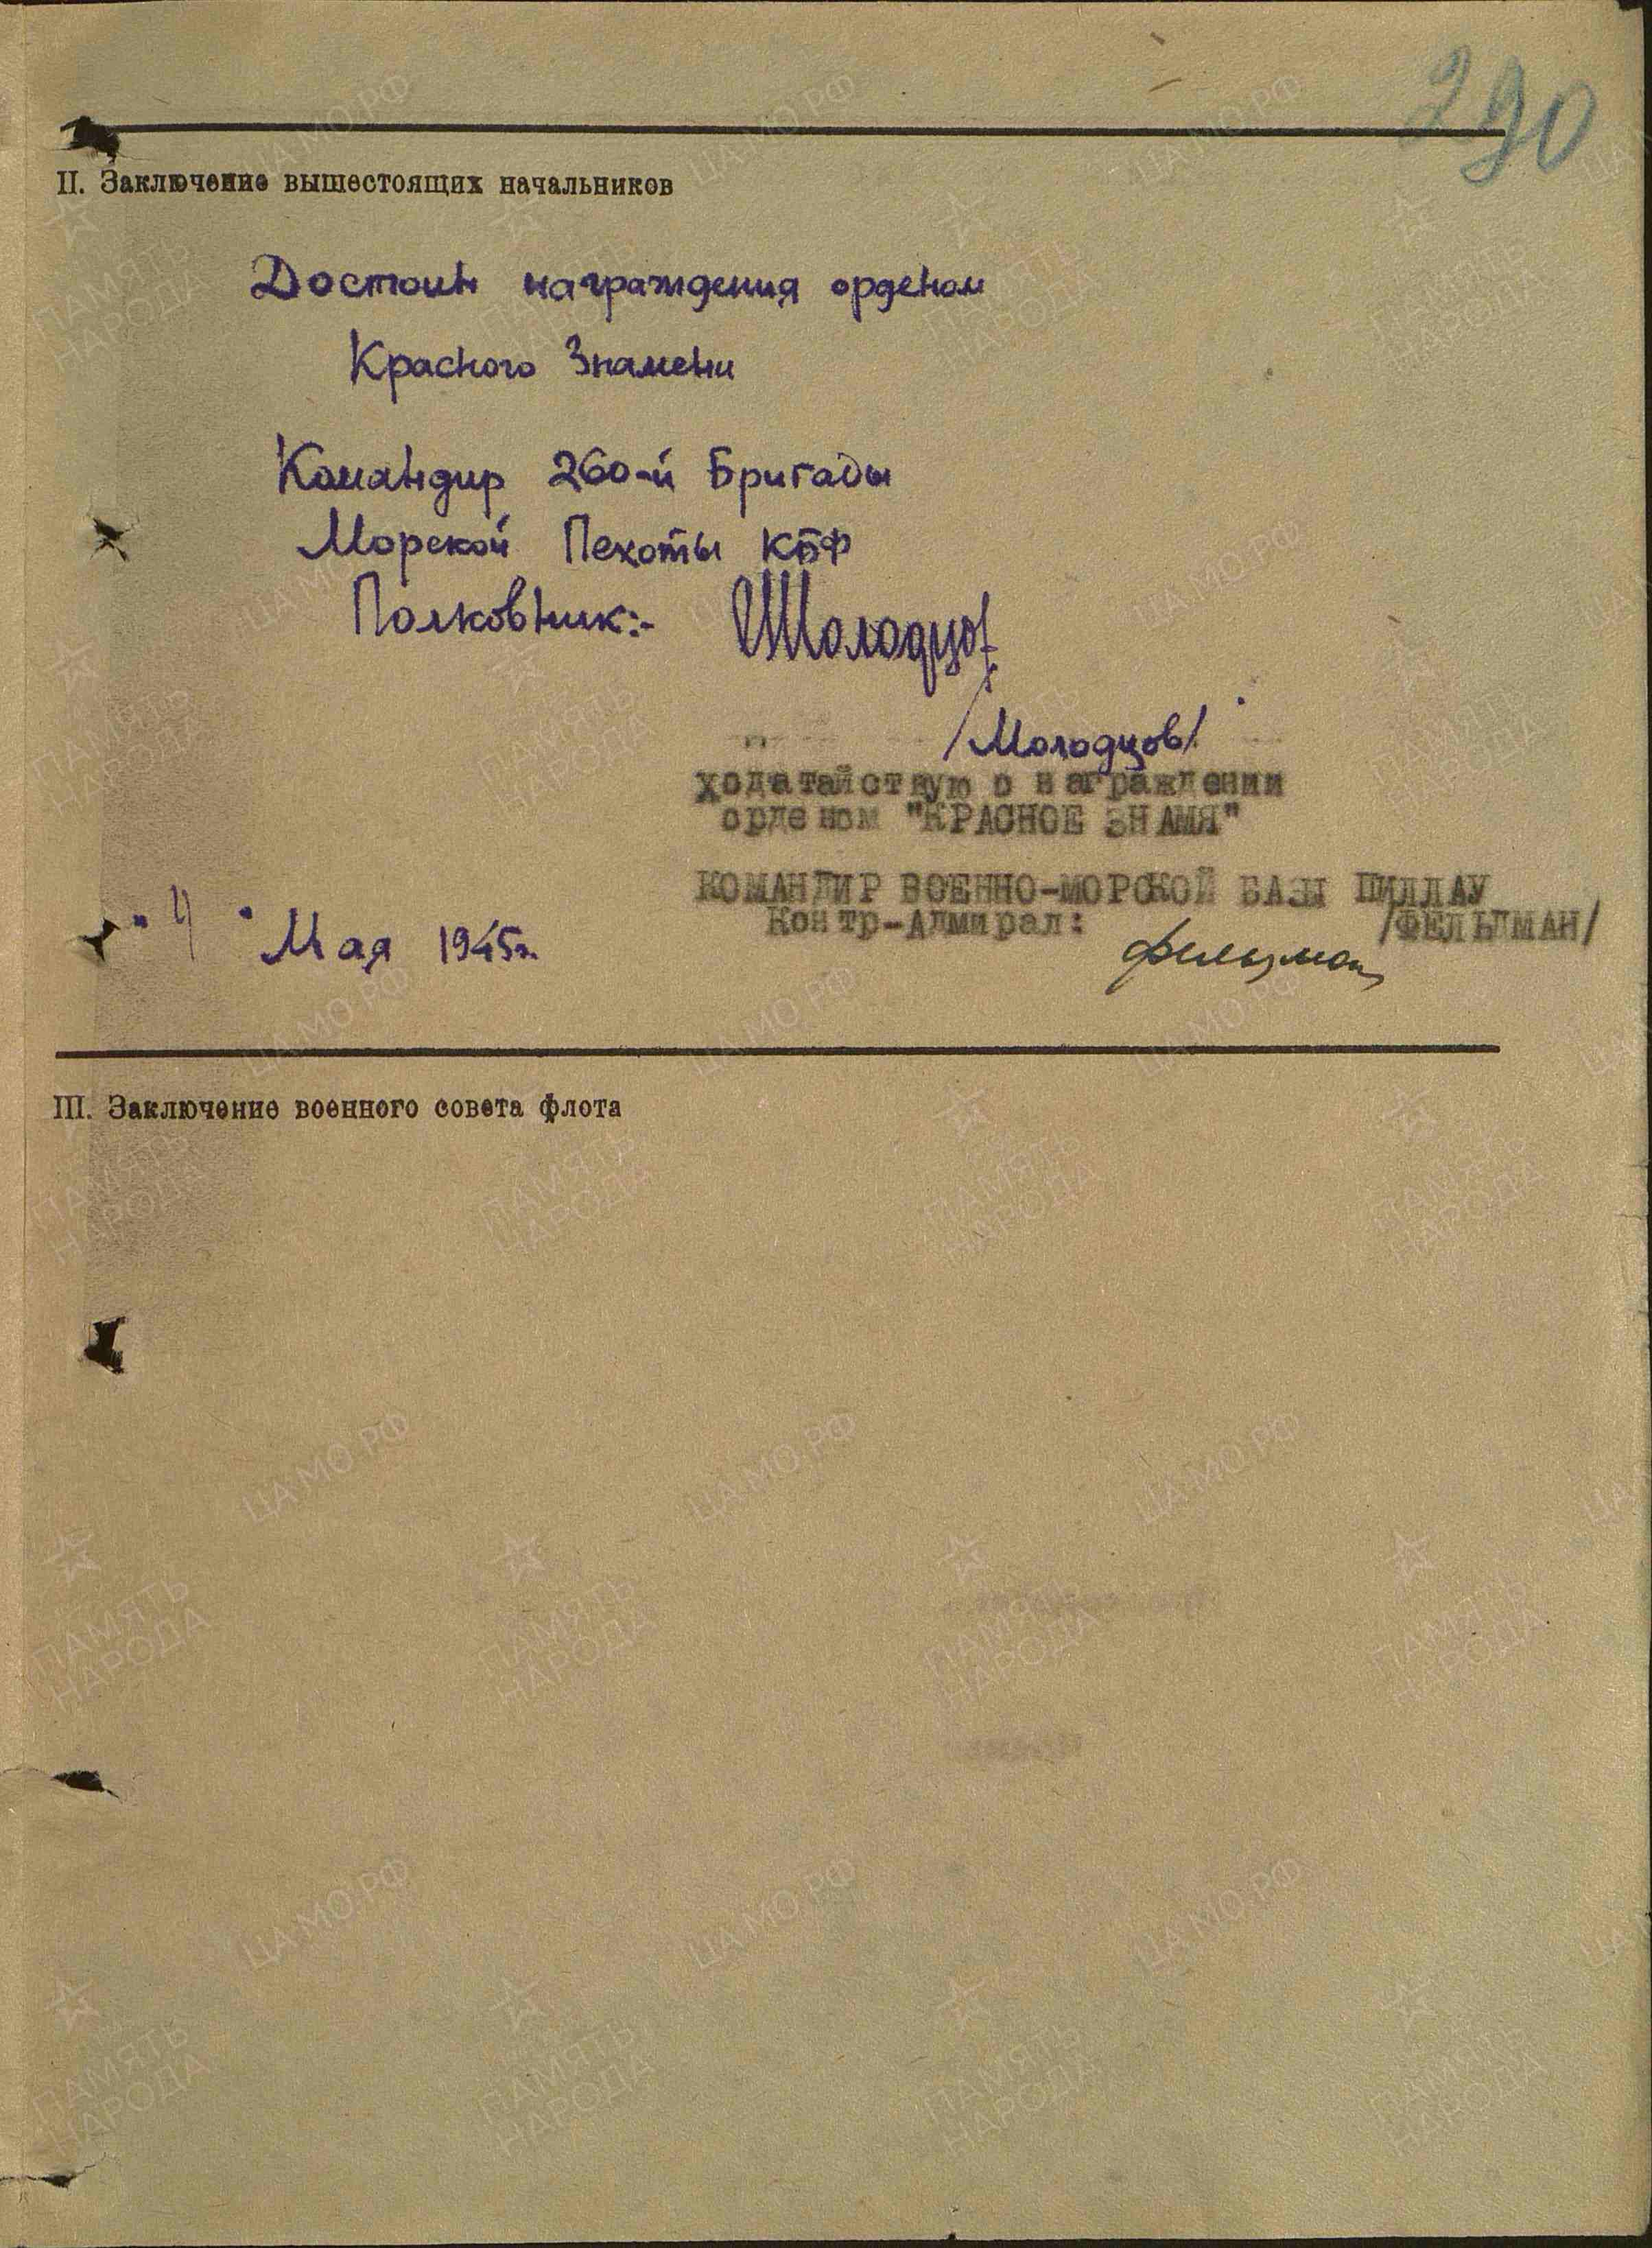 290
II. Заключение вышестоящих начальников
Достоин награждения орденом
Красного Знамени
Командир 260-й Бригады
Морской Пехоты КБФ
Полковник:- Молодцов
/Молодцов/
ходатайствую о награждении
орденом "КРАСНОЕ ЗНАМЯ"
КОМАНДИР ВОЕННО-МОРСКОЙ БАЗЫ ПИЛЛАУ
Контр-Адмирал: /ФЕЛЬДМАН/
Фельдман
" 4 " Мая 1945г.
III. Заключение военного совета флота
ПАМЯТЬ НАРОДА
ЦАМО.РФ